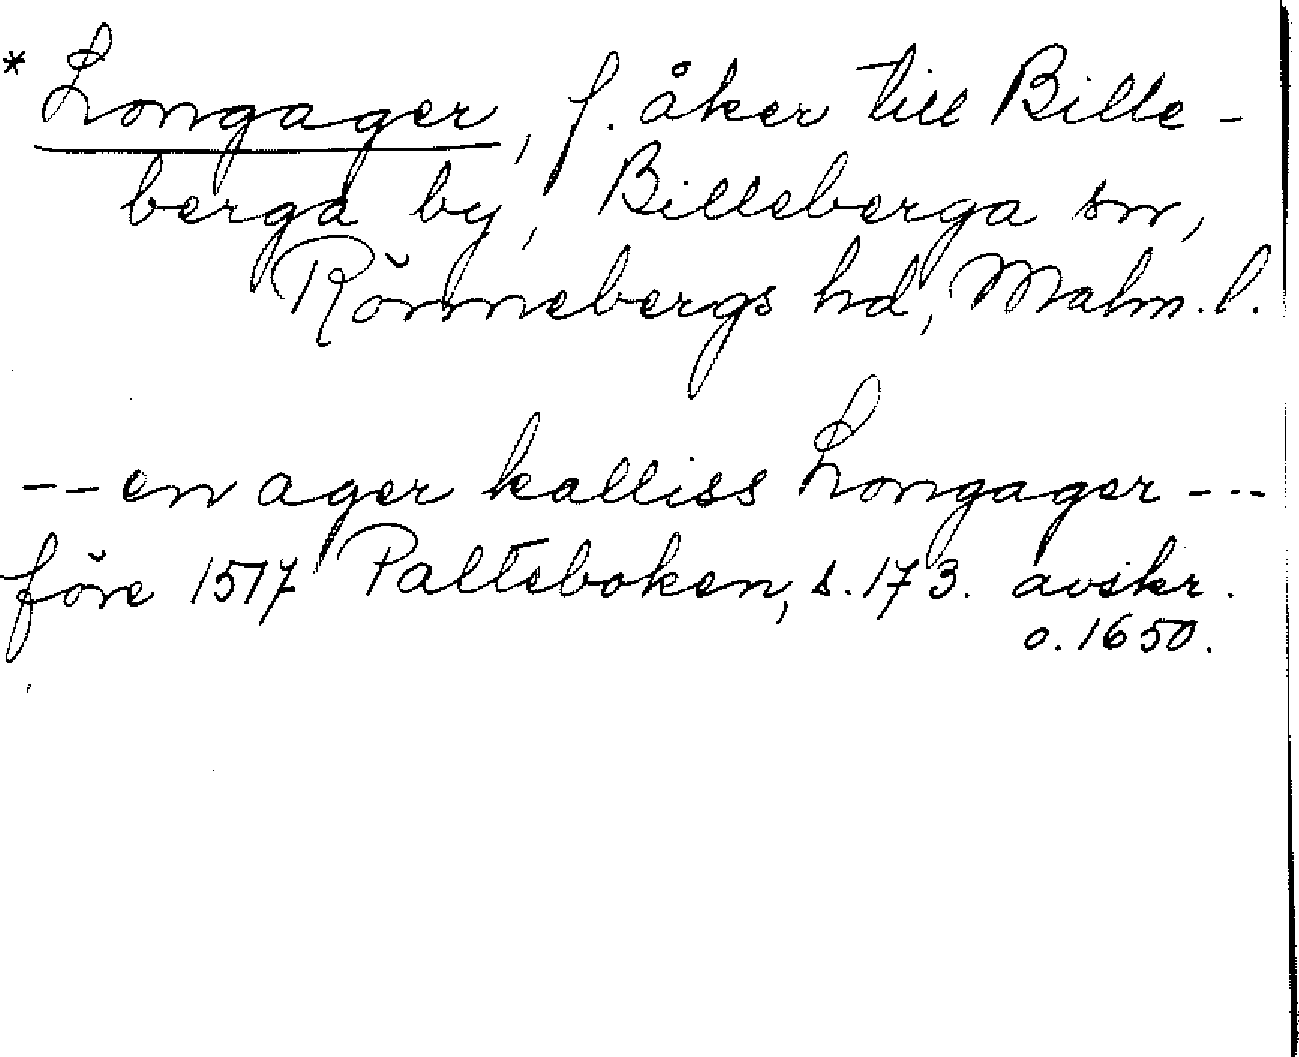 * Longager, f. åker till Bille-
berga by, Billeberga sn,
Rönnebergs hd, Malm. l.
-- en ager kalliss Longager ---
före 1517 Palteboken, s. 173. avskr.
o. 1650.